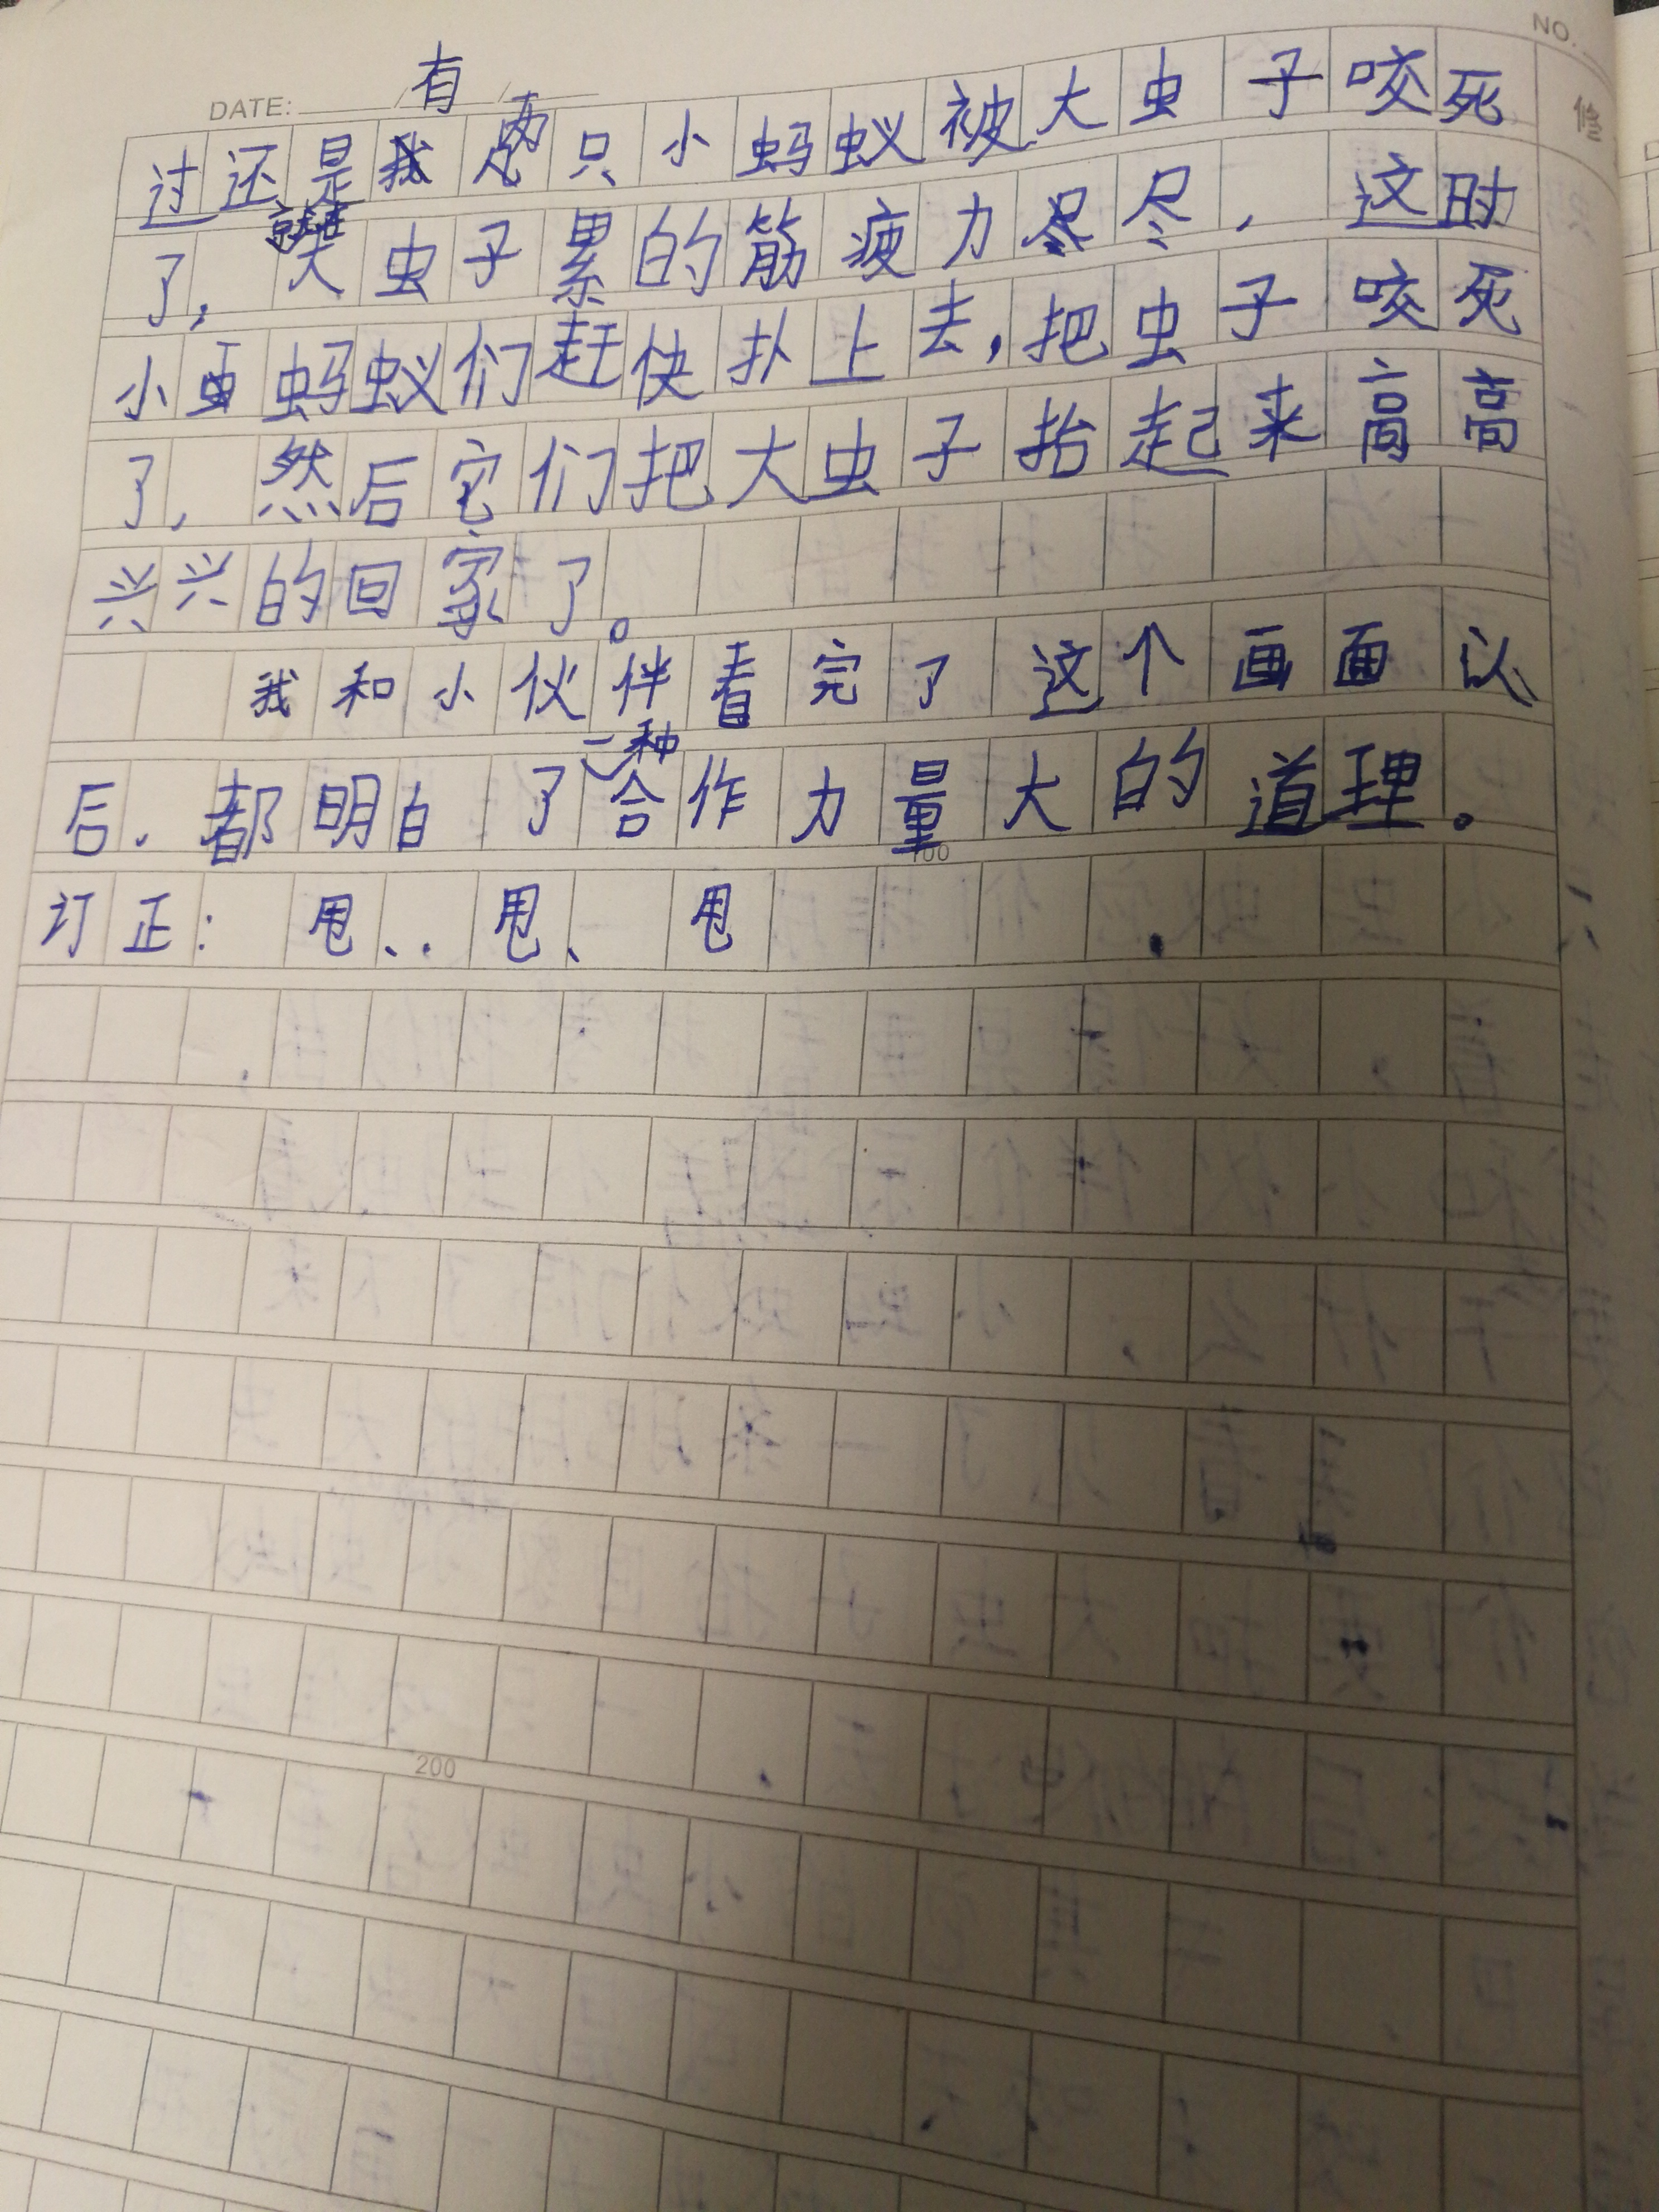 NO.
DATE:
有 两
过还是只小蚂蚁被大虫子咬死
修
了，大虫子累的筋疲力尽，这时
小蚂蚁们赶快扑上去，把虫子咬死
了，然后它们把大虫子抬起来高高
兴兴的回家了。
我和小伙伴看完了这个画面以
一种
后，都明白了合作力量大的道理。
100
订正：甩、.甩、甩
200